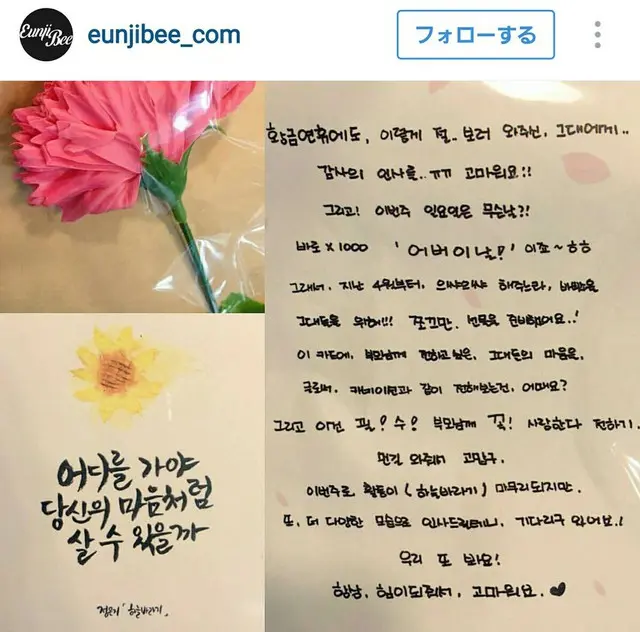 Eunji Bee
eunjibee_com
フォローする
황금연휴에도, 이렇게 절.. 보러 와주신, 그대에게..
감사의 인사를.. ㅠㅠ 고마워요!!
그리고! 이번주 일요일은 무슨날?!
바로 x 1000 '어버이날!' 이죠~ㅎㅎ
그래서, 지난 4월부터, 으쌰으쌰 해주느라, 바빴을
그대들을 위해!!! 쪼끄만, 선물을 준비했어요..!
이 카드에, 부모님께 전하고 싶은, 그대들의 마음을,
글로써, 카네이션과 같이 전해보는건, 어때요?
그리고 이건 필! 수! 부모님께 꼭! 사랑한다 전하기.
먼길 와줘서 고맙구,
이번주로 활동이 (하늘바라기) 마무리되지만,
또, 더 다양한 모습으로 인사드릴테니, 기다리구 있어요!
우리 또 봐요!
항상, 힘이되줘서, 고마워요.
어디를 가야
당신의 마음처럼
살 수 있을까
정은지 '하늘바라기'